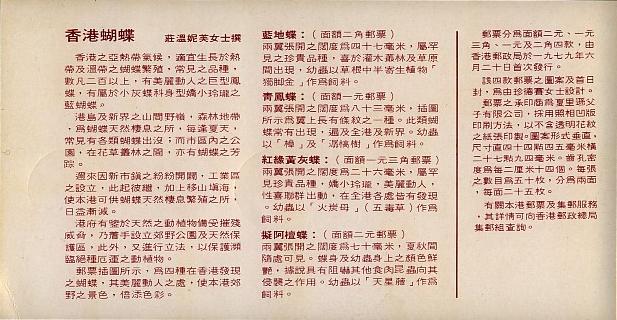 香港蝴蝶 莊溫妮芙女士撰
香港之亞熱帶氣候，適宜生長於熱
帶及溫帶之蝴蝶繁殖，常見之品種，
數凡二百以上，有美麗動人之巨型鳳
蝶，有屬於小灰蝶科身型嬌小玲瓏之
藍蝴蝶。
港島及新界之山間野嶺，森林地帶
，爲蝴蝶天然棲息之所，每逢夏天，
常見有各類蝴蝶出沒；而市區內之公
園，在花草叢林之間，亦有蝴蝶之芳
踪。
邇來因新市鎮之紛粉開闢，工業區
之設立，此起彼繼，加上移山塡海，
使本港可供蝴蝶天然棲息繁殖之所，
日益漸減。
港府有鑒於天然之動植物備受摧殘
威脅，乃着手設立郊野公園及天然保
護區，此外，又進行立法，以保護瀕
臨絕種厄運之動植物。
郵票插圖所示，爲四種在香港發現
之蝴蝶，其美麗動人之處，使本港郊
野之景色，倍添色彩。
藍地蝶：（面額二角郵票）
兩翼張開之闊度爲四十七毫米，屬罕
見之珍貴品種，喜於灌木叢林及草原
間出現，幼蟲以草根中半寄生植物「
獨脚金」作爲飼料。
靑鳳蝶：（面額一元郵票）
兩翼張開之闊度爲八十三毫米，插圖
所示爲翼上長有條紋之一種。此類蝴
蝶常有出現，遍及全港及新界。幼蟲
以「樟」及「潺槁樹」作爲飼料。
紅緣黃灰蝶：（面額一元三角郵票）
兩翼張開之闊度爲二十六毫米，屬罕
見珍貴品種，嬌小玲瓏，美麗動人，
性喜聯群出動，在全港各處皆有發現
。幼蟲以「火炭母」（五毒草）作爲
飼料。
擬阿檀蝶：（面額二元郵票）
兩翼張開之闊度爲七十毫米，夏秋間
隨處可見。蝶身及幼蟲身上之顏色鮮
艷，據說具有阻嚇其他食肉昆蟲向其
侵襲之作用。幼蟲以「天星藤」作爲
飼料。
郵票分爲面額二元、一元
三角、一元及二角四款，由
香港郵政局於一九七九年六
月二十日首次發行。
該四款郵票之圖案及首日
封，爲由珍德賽女士設計。
郵票之承印商爲夏里遜父
子有限公司，採用照相凹版
印刷方法，以不含透明花紋
之紙張印製。圖案形式垂直，
尺寸直四十四點四五毫米橫
二十七點九四毫米。齒孔密
度爲每二厘米十四個。每張
之數目爲五十枚，分爲兩面
，每面二十五枚。
有關本港郵票及集郵服務
，其詳情可向香港郵政總局
集郵組查詢。